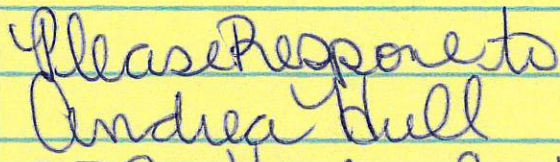 Please Respone to
Andrea Hull